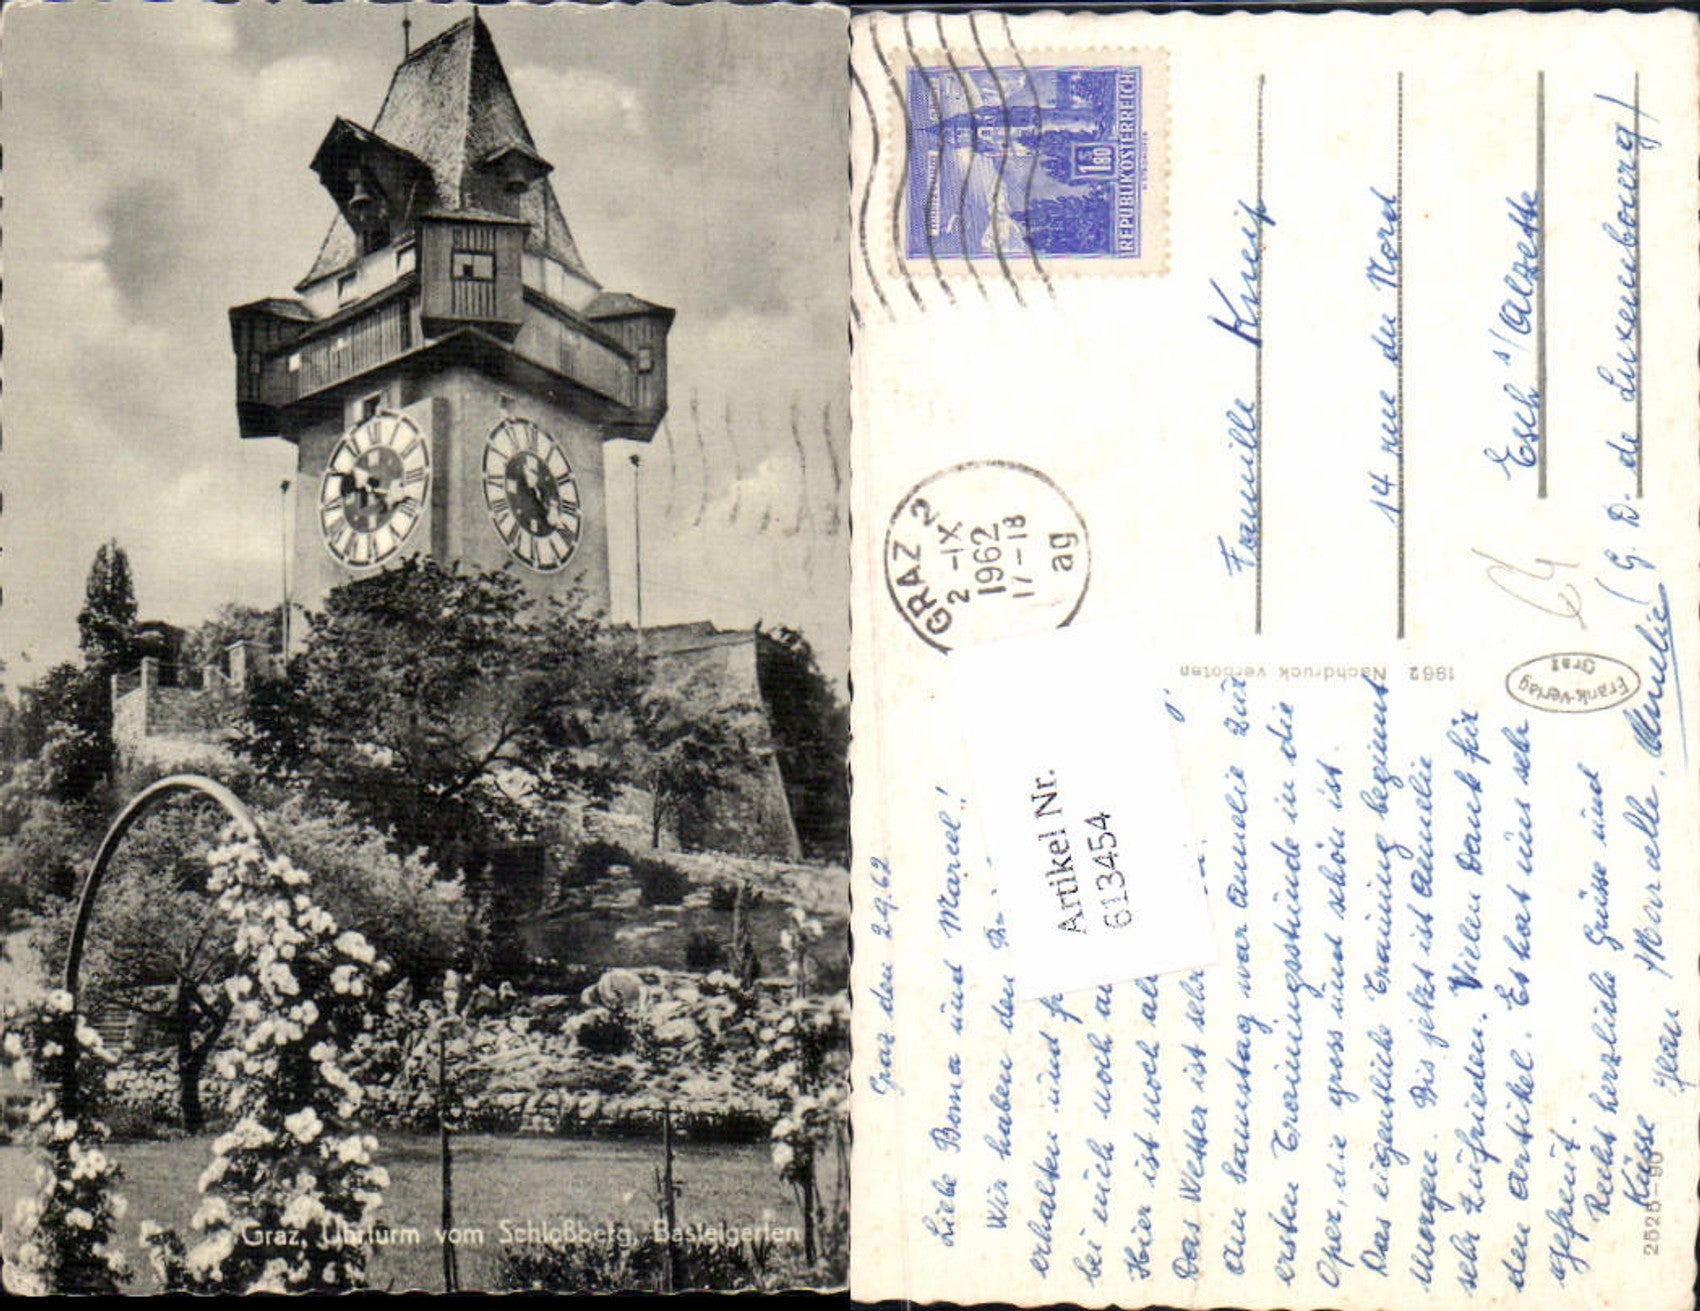 Graz, Uhrturm vom Schloßberg, Basteigarten
REPUBLIK ÖSTERREICH
1.80
GRAZ 2
2 -IX
1962
17-18
ag
Famille Kneip
14 rue du Nord
Esch s/Alzette
(G. D. de Luxembourg)
1962 Nachdruck verboten
Frank-Verlag
Graz
Artikel Nr.
613454
Graz den 2.9.62
Liebe Boma und Marcel!
Wir haben den
erhalten und
bei euch noch
Hier ist noch
Das Wetter ist sehr
Am Samstag war Amelie zur
ersten Trainingsstunde in die
Oper, die gross und schön ist.
Das eigentliche Training beginnt
Morgen. Bis jetzt ist Amelie
sehr zufrieden. Vielen Dank für
den Artikel. Es hat uns sehr
gefreut.
Recht herzliche Grüsse und
Küsse Jean Marcelle. Amelie
2525-90